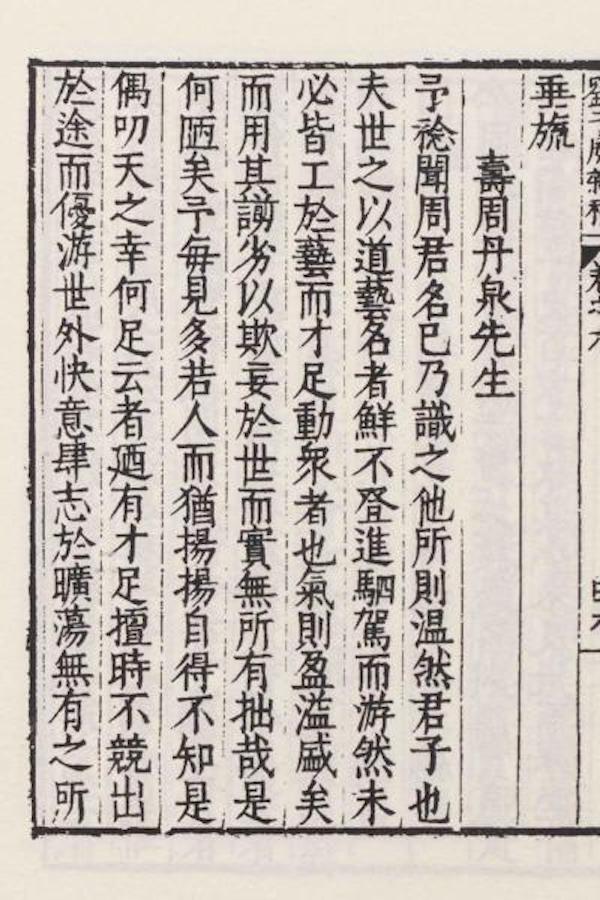 垂旒
壽周丹泉先生
予稔聞周君名已乃識之他所則温然君子也
夫世之以道藝名者鮮不登進駟駕而游然未
必皆工於藝而才足動衆者也氣則盈溢盛矣
而用其謭劣以欺妄於世而實無所有拙哉是
何陋矣予每見多若人而猶揚揚自得不知是
偶叨天之幸何足云者廼有才足擅時不競出
於途而優游世外快意肆志於曠蕩無有之所